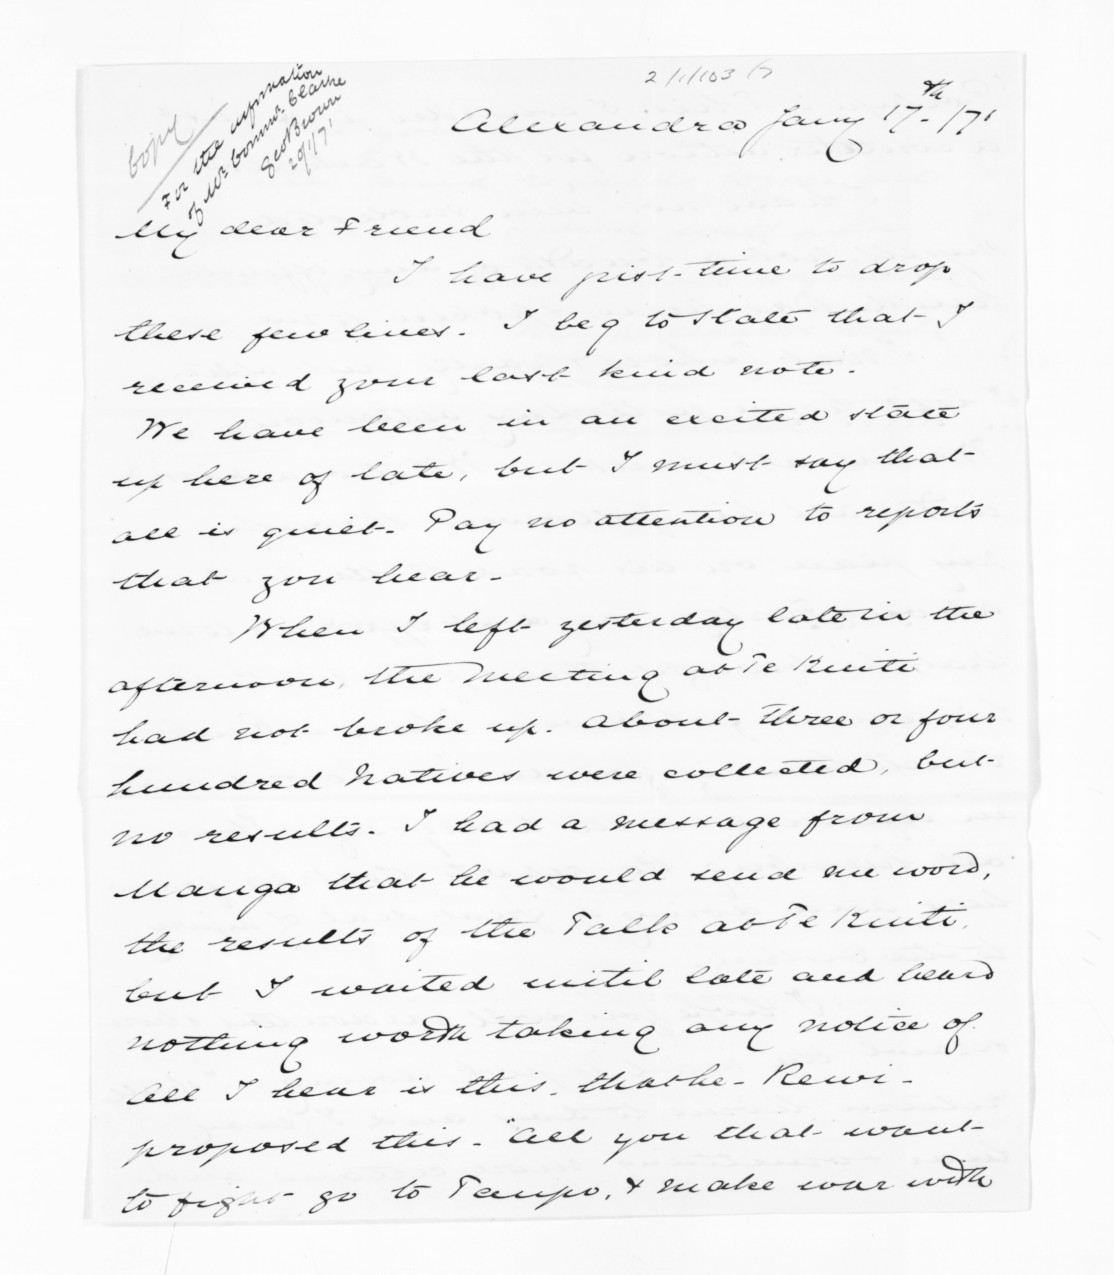 2/1/103
Copy
For the information
of Mr Commr. Clarke
Geo Brown
20/1/71
Alexandra Jany 17th /71
My dear Friend
I have just time to drop
these few lines. I beg to state that I
received your last kind note.
We have been in an excited state
up here of late, but I must say that
all is quiet. Pay no attention to reports
that you hear.
When I left yesterday late in the
afternoon, the meeting at Te Kuiti
had not broke up. About three or four
hundred Natives were collected, but
no results. I had a message from
Manga that he would send me word,
the results of the Talk at Te Kuiti,
but I waited until late and heard
nothing worth taking any notice of.
All I hear is this, that he - Rewi -
proposed this - "All you that want
to fight go to Taupo, & make war with